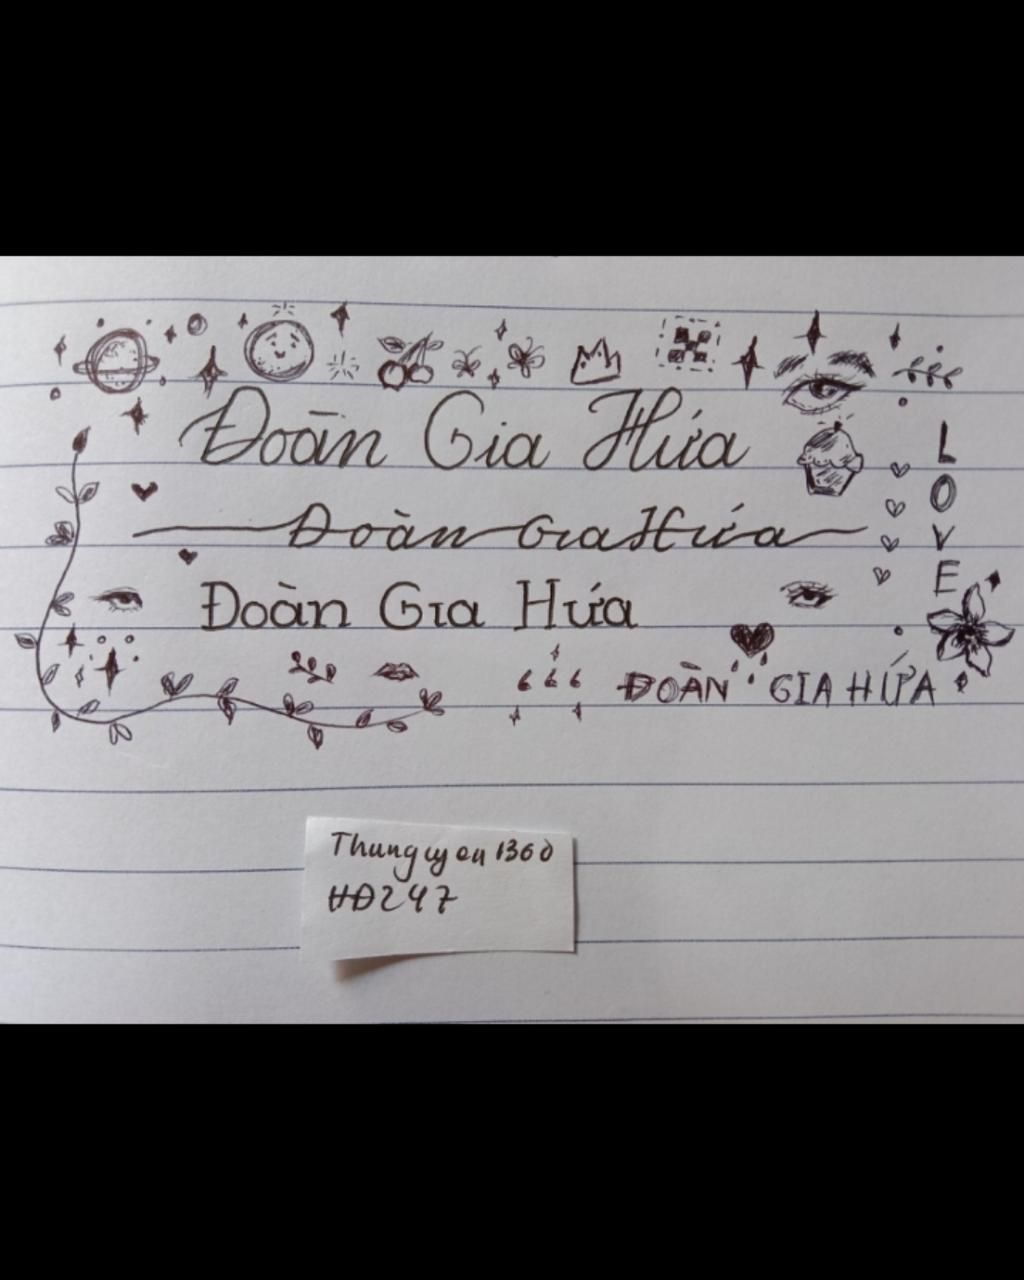 Đoàn Gia Hứa
Đoàn Gia Hứa
Đoàn Gia Hứa
666
ĐOÀN GIA HỨA
L
O
V
E
Thunguyen1360
HĐ247